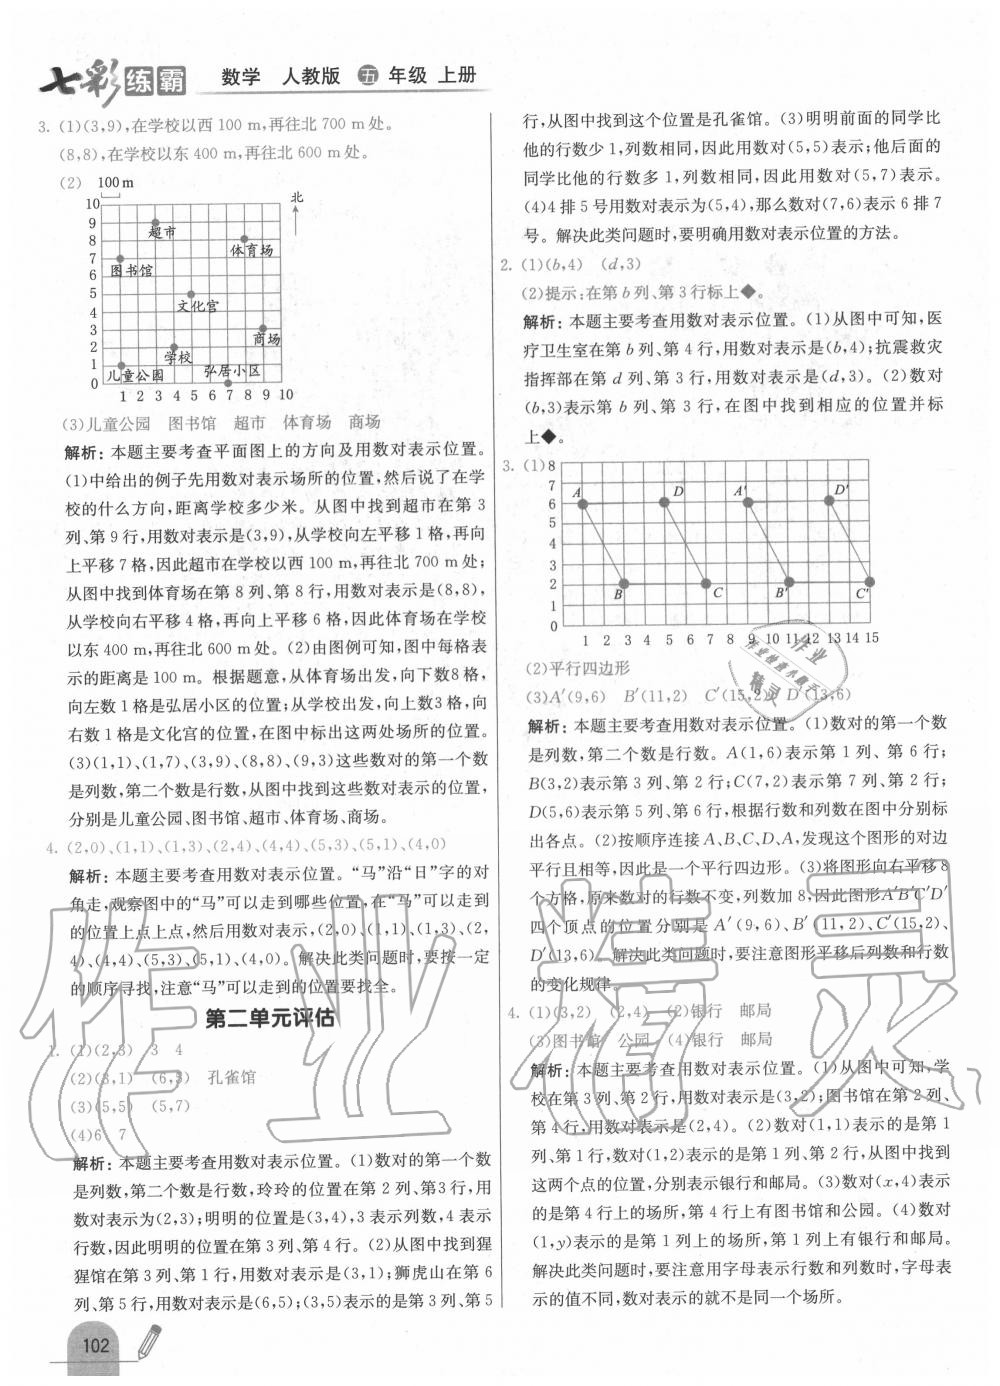 七彩练霸 数学 人教版 五 年级 上册
3. (1)(3,9),在学校以西 100 m,再往北 700 m 处。
(8,8),在学校以东 400 m,再往北 600 m 处。
(2) 100 m
北
10
9
8
7
6
5
4
3
2
1
0
超市
体育场
图书馆
文化宫
商场
学校
儿童公园
弘居小区
1 2 3 4 5 6 7 8 9 10
(3)儿童公园 图书馆 超市 体育场 商场
解析: 本题主要考查平面图上的方向及用数对表示位置。
(1)中给出的例子先用数对表示场所的位置,然后说了在学
校的什么方向,距离学校多少米。从图中找到超市在第 3
列、第 9 行,用数对表示是(3,9),从学校向左平移 1 格,再向
上平移 7 格,因此超市在学校以西 100 m,再往北 700 m 处;
从图中找到体育场在第 8 列、第 8 行,用数对表示是(8,8),
从学校向右平移 4 格,再向上平移 6 格,因此体育场在学校
以东 400 m,再往北 600 m 处。(2)由图例可知,图中每格表
示的距离是 100 m。根据题意,从体育场出发,向下数8 格,
向左数 1 格是弘居小区的位置;从学校出发,向上数3 格,向
右数 1 格是文化宫的位置,在图中标出这两处场所的位置。
(3)(1,1)、(1,7)、(3,9)、(8,8)、(9,3)这些数对的第一个数
是列数,第二个数是行数,从图中找到这些数对表示的位置,
分别是儿童公园、图书馆、超市、体育场、商场。
4. (2,0)、(1,1)、(1,3)、(2,4)、(4,4)、(5,3)、(5,1)、(4,0)
解析: 本题主要考查用数对表示位置。“马”沿“日”字的对
角走,观察图中的“马”可以走到哪些位置,在“马”可以走到
的位置上点上点,然后用数对表示,(2,0)、(1,1)、(1,3)、(2,
4)、(4,4)、(5,3)、(5,1)、(4,0)。解决此类问题时,要按一定
的顺序寻找,注意“马”可以走到的位置要找全。
第二单元评估
1. (1)(2,3) 3 4
(2)(3,1) (6,5) 孔雀馆
(3)(5,5) (5,7)
(4)6 7
解析: 本题主要考查用数对表示位置。(1)数对的第一个数
是列数,第二个数是行数,玲玲的位置在第 2 列、第3 行,用
数对表示为(2,3);明明的位置是(3,4),3 表示列数,4 表示
行数,因此明明的位置在第 3 列、第 4 行。(2)从图中找到猩
猩馆在第 3 列、第 1 行,用数对表示是(3,1);狮虎山在第 6
列、第 5 行,用数对表示是(6,5);(3,5)表示的是第 3 列、第 5
102
行,从图中找到这个位置是孔雀馆。(3)明明前面的同学比
他的行数少 1,列数相同,因此用数对(5,5)表示;他后面的
同学比他的行数多 1,列数相同,因此用数对(5,7)表示。
(4)4 排 5 号用数对表示为(5,4),那么数对(7,6)表示 6 排 7
号。解决此类问题时,要明确用数对表示位置的方法。
2. (1)(b,4) (d,3)
(2)提示:在第 b 列、第 3 行标上◆。
解析: 本题主要考查用数对表示位置。(1)从图中可知,医
疗卫生室在第 b 列、第 4 行,用数对表示是(b,4);抗震救灾
指挥部在第 d 列、第 3 行,用数对表示是(d,3)。(2)数对
(b,3)表示第 b 列、第 3 行,在图中找到相应的位置并标
上◆。
3. (1)
8
7
6
5
4
3
2
1
0
A D A′ D′
B C B′ C′
1 2 3 4 5 6 7 8 9 10 11 12 13 14 15
(2)平行四边形
(3)A′(9,6) B′(11,2) C′(15,2) D′(13,6)
解析: 本题主要考查用数对表示位置。(1)数对的第一个数
是列数,第二个数是行数。A(1,6)表示第 1 列、第 6 行;
B(3,2)表示第 3 列、第 2 行;C(7,2)表示第 7 列、第 2 行;
D(5,6)表示第 5 列、第 6 行,根据行数和列数在图中分别标
出各点。(2)按顺序连接 A、B、C、D、A,发现这个图形的对边
平行且相等,因此是一个平行四边形。(3)将图形向右平移 8
个方格,原来数对的行数不变,列数加 8,因此图形A′B′C′D′
四个顶点的位置分别是 A′(9,6)、B′(11,2)、C′(15,2)、
D′(13,6)。解决此类问题时,要注意图形平移后列数和行数
的变化规律。
4. (1)(3,2) (2,4) (2)银行 邮局
(3)图书馆 公园 (4)银行 邮局
解析: 本题主要考查用数对表示位置。(1)从图中可知,学
校在第 3 列、第 2 行,用数对表示是(3,2);图书馆在第 2 列、
第 4 行,用数对表示是(2,4)。(2)数对(1,1)表示的是第 1
列、第 1 行,数对(1,2)表示的是第 1 列、第 2 行,从图中找到
这两个点的位置,分别表示银行和邮局。(3)数对(x,4)表示
的是第 4 行上的场所,第 4 行上有图书馆和公园。(4)数对
(1,y)表示的是第 1 列上的场所,第 1 列上有银行和邮局。
解决此类问题时,要注意用字母表示行数和列数时,字母表
示的值不同,数对表示的就不是同一个场所。
作业精灵